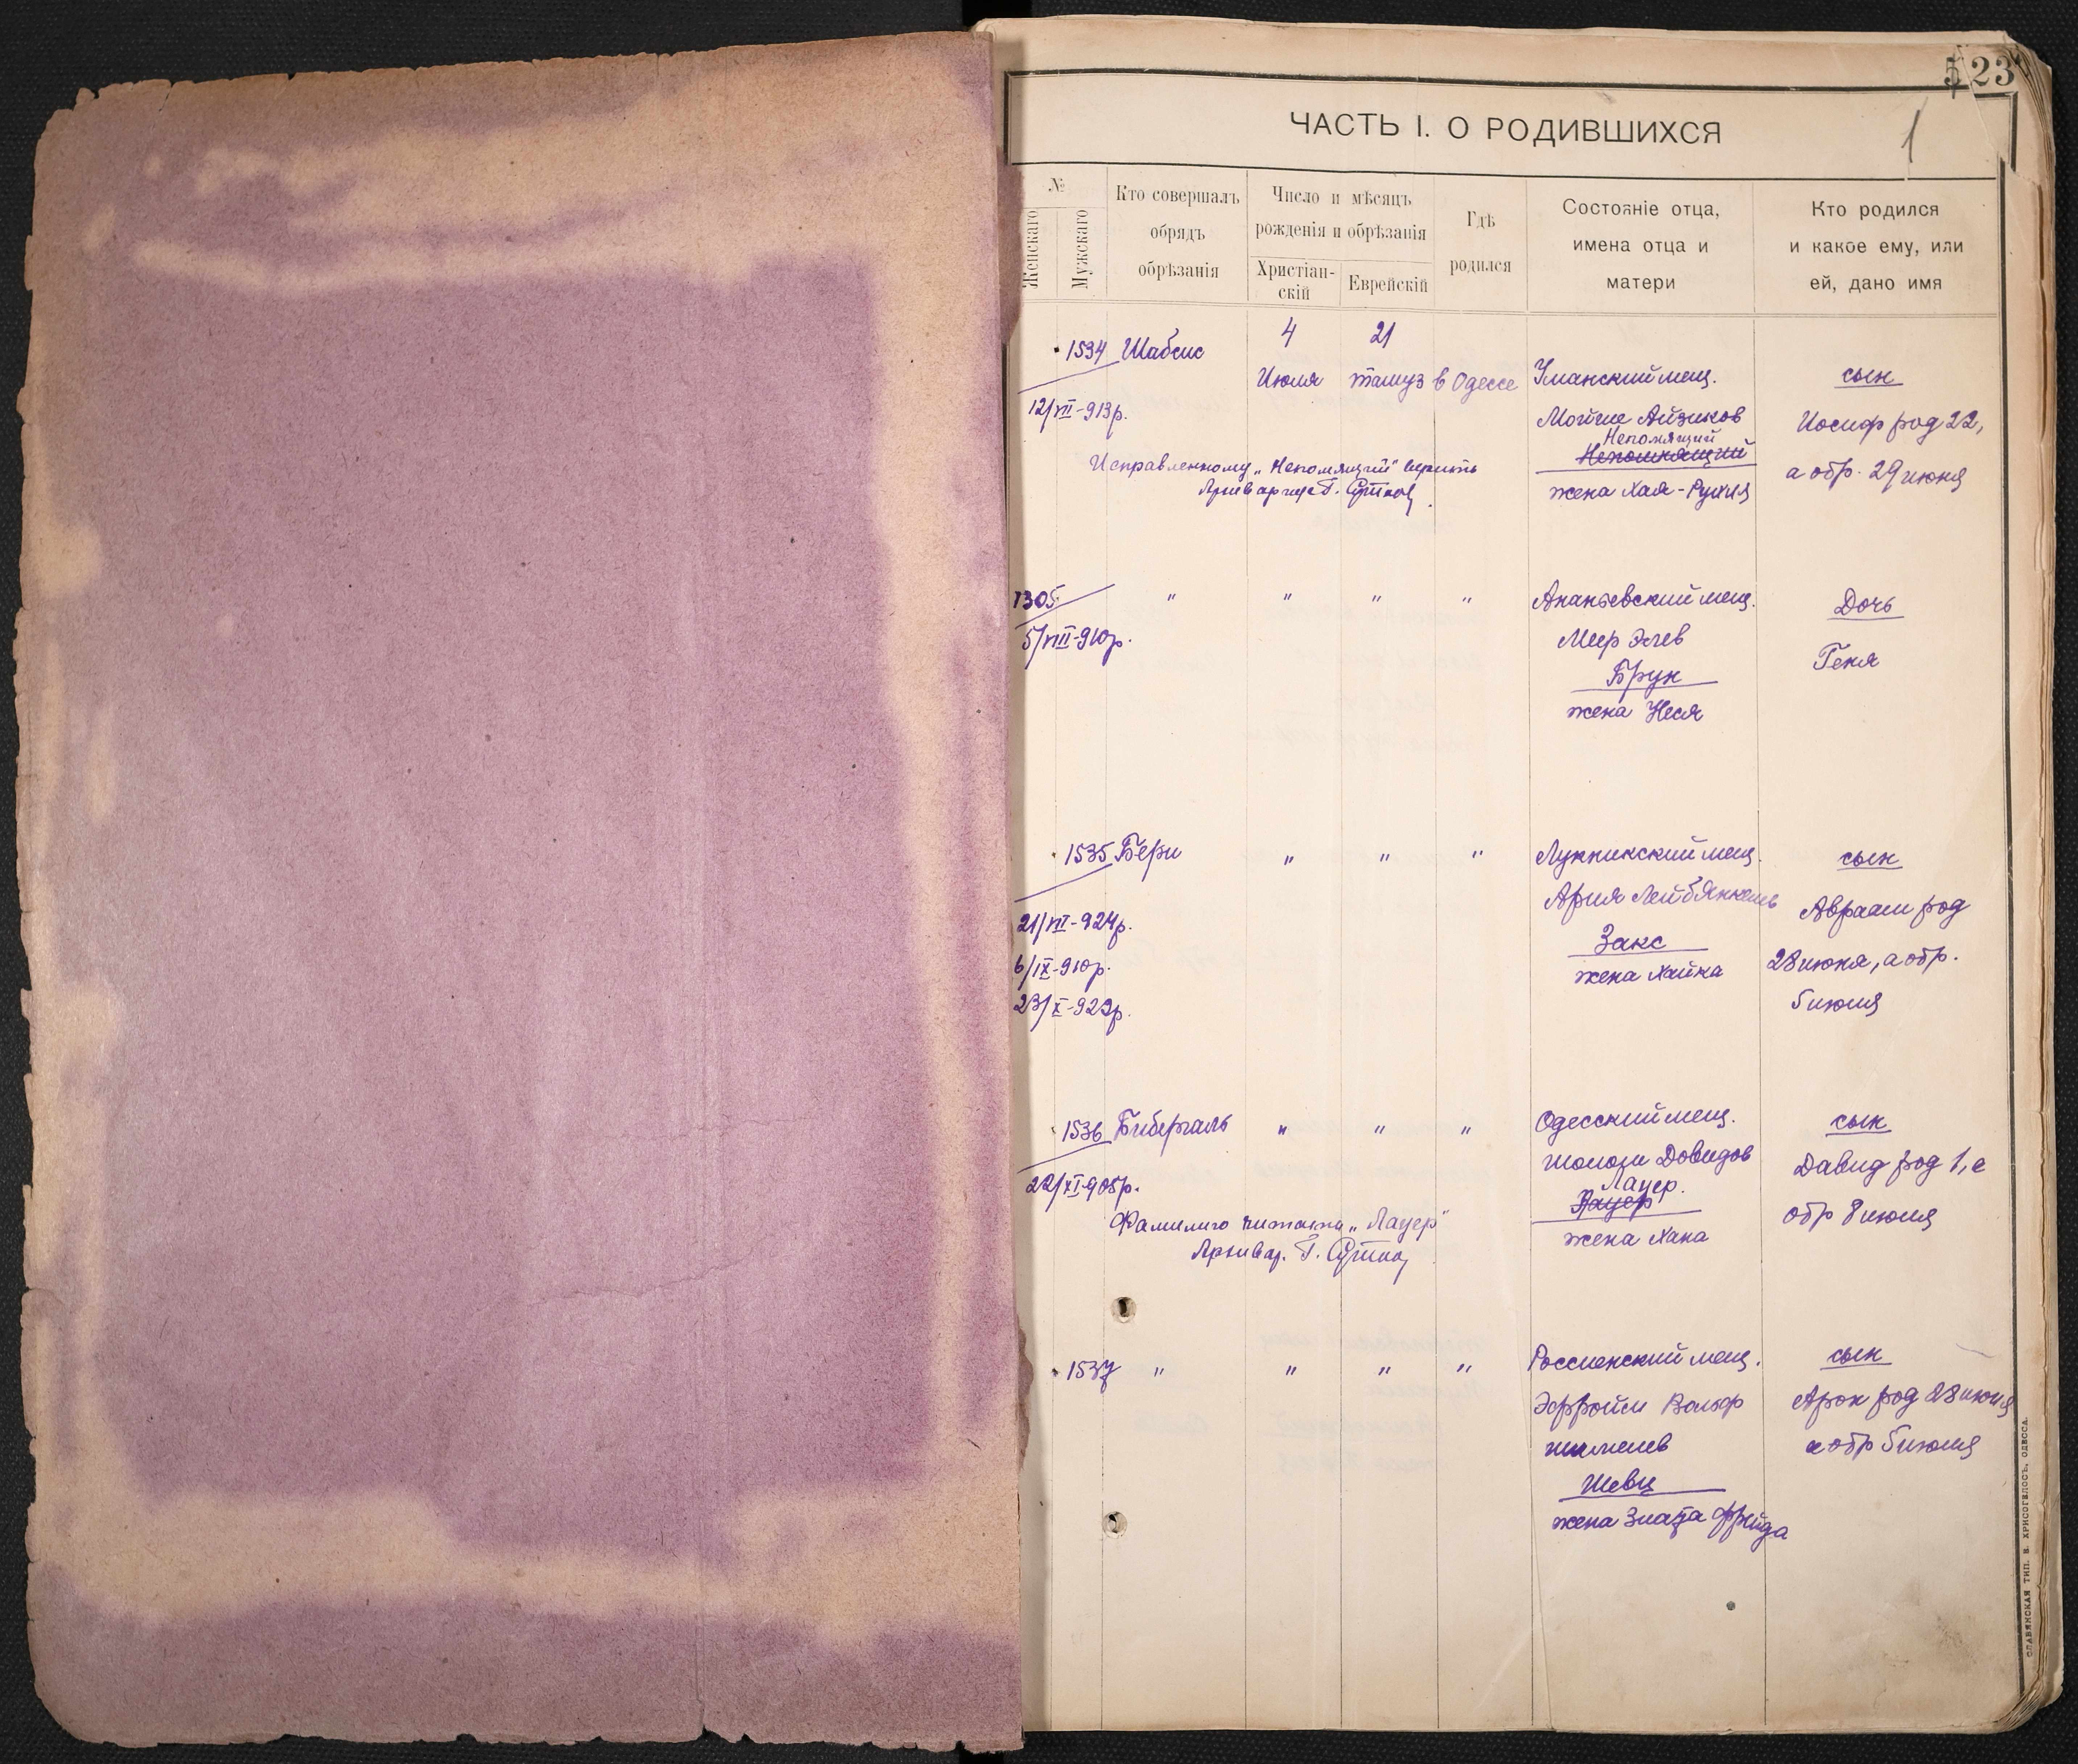 523
ЧАСТЬ I. О РОДИВШИХСЯ
1
№
Женскаго
Мужскаго
Кто совершалъ
обрядъ
обрѣзанія
Число и мѣсяцъ
рожденія и обрѣзанія
Христіан-
скій
Еврейскій
Гдѣ
родился
Состояніе отца,
имена отца и
матери
Кто родился
и какое ему, или
ей, дано имя
1534 Шабсис 4 Июля 21 тамуз в Одессе Уманский мещ. сын
12/VII-913р.
Мойше Айзиков Иосиф род 22,
Непомнящий
а обр. 29 июня
Исправленному „Непомнящий" верить
Архивариус Г.
жена Хая-Рухля
1305 " " " " Ананьевский мещ. Дочь
5/VIII-910р.
Меер Элев Геня
Брук
жена Неся
1535 Бери " " " мещ. сын
21/VII-924р.
Ария Лейб Янкелев Авраам род
6/IX-910р.
Закс
28 июня, а обр.
23/X-923р.
жена Хайка
5 июля
1536 Бибергаль " " " Одесский мещ. сын
22/XI-905р.
Шолом Довидов Давид род 1, а
Лауер.
обр 8 июля
Фамилию читать „Лауер"
Архивар. Г.
жена Хана
1537 " " " " Россиенский мещ. сын
Эфройм Вольф Арон род 28 июня
а обр 5 июля
Шевц
жена Злата Фрейда
СЛАВЯНСКАЯ ТИП. В. ХРИСОГЕЛОСЪ, ОДЕССА.